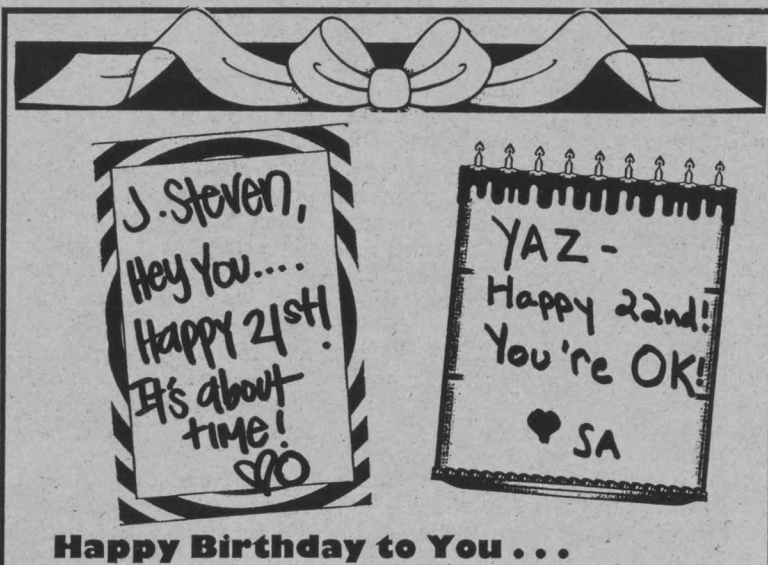 J. Steven,
Hey You....
Happy 21st!
It's about
time!
YAZ -
Happy 22nd!
You're OK!
♥ SA
Happy Birthday to You . . .